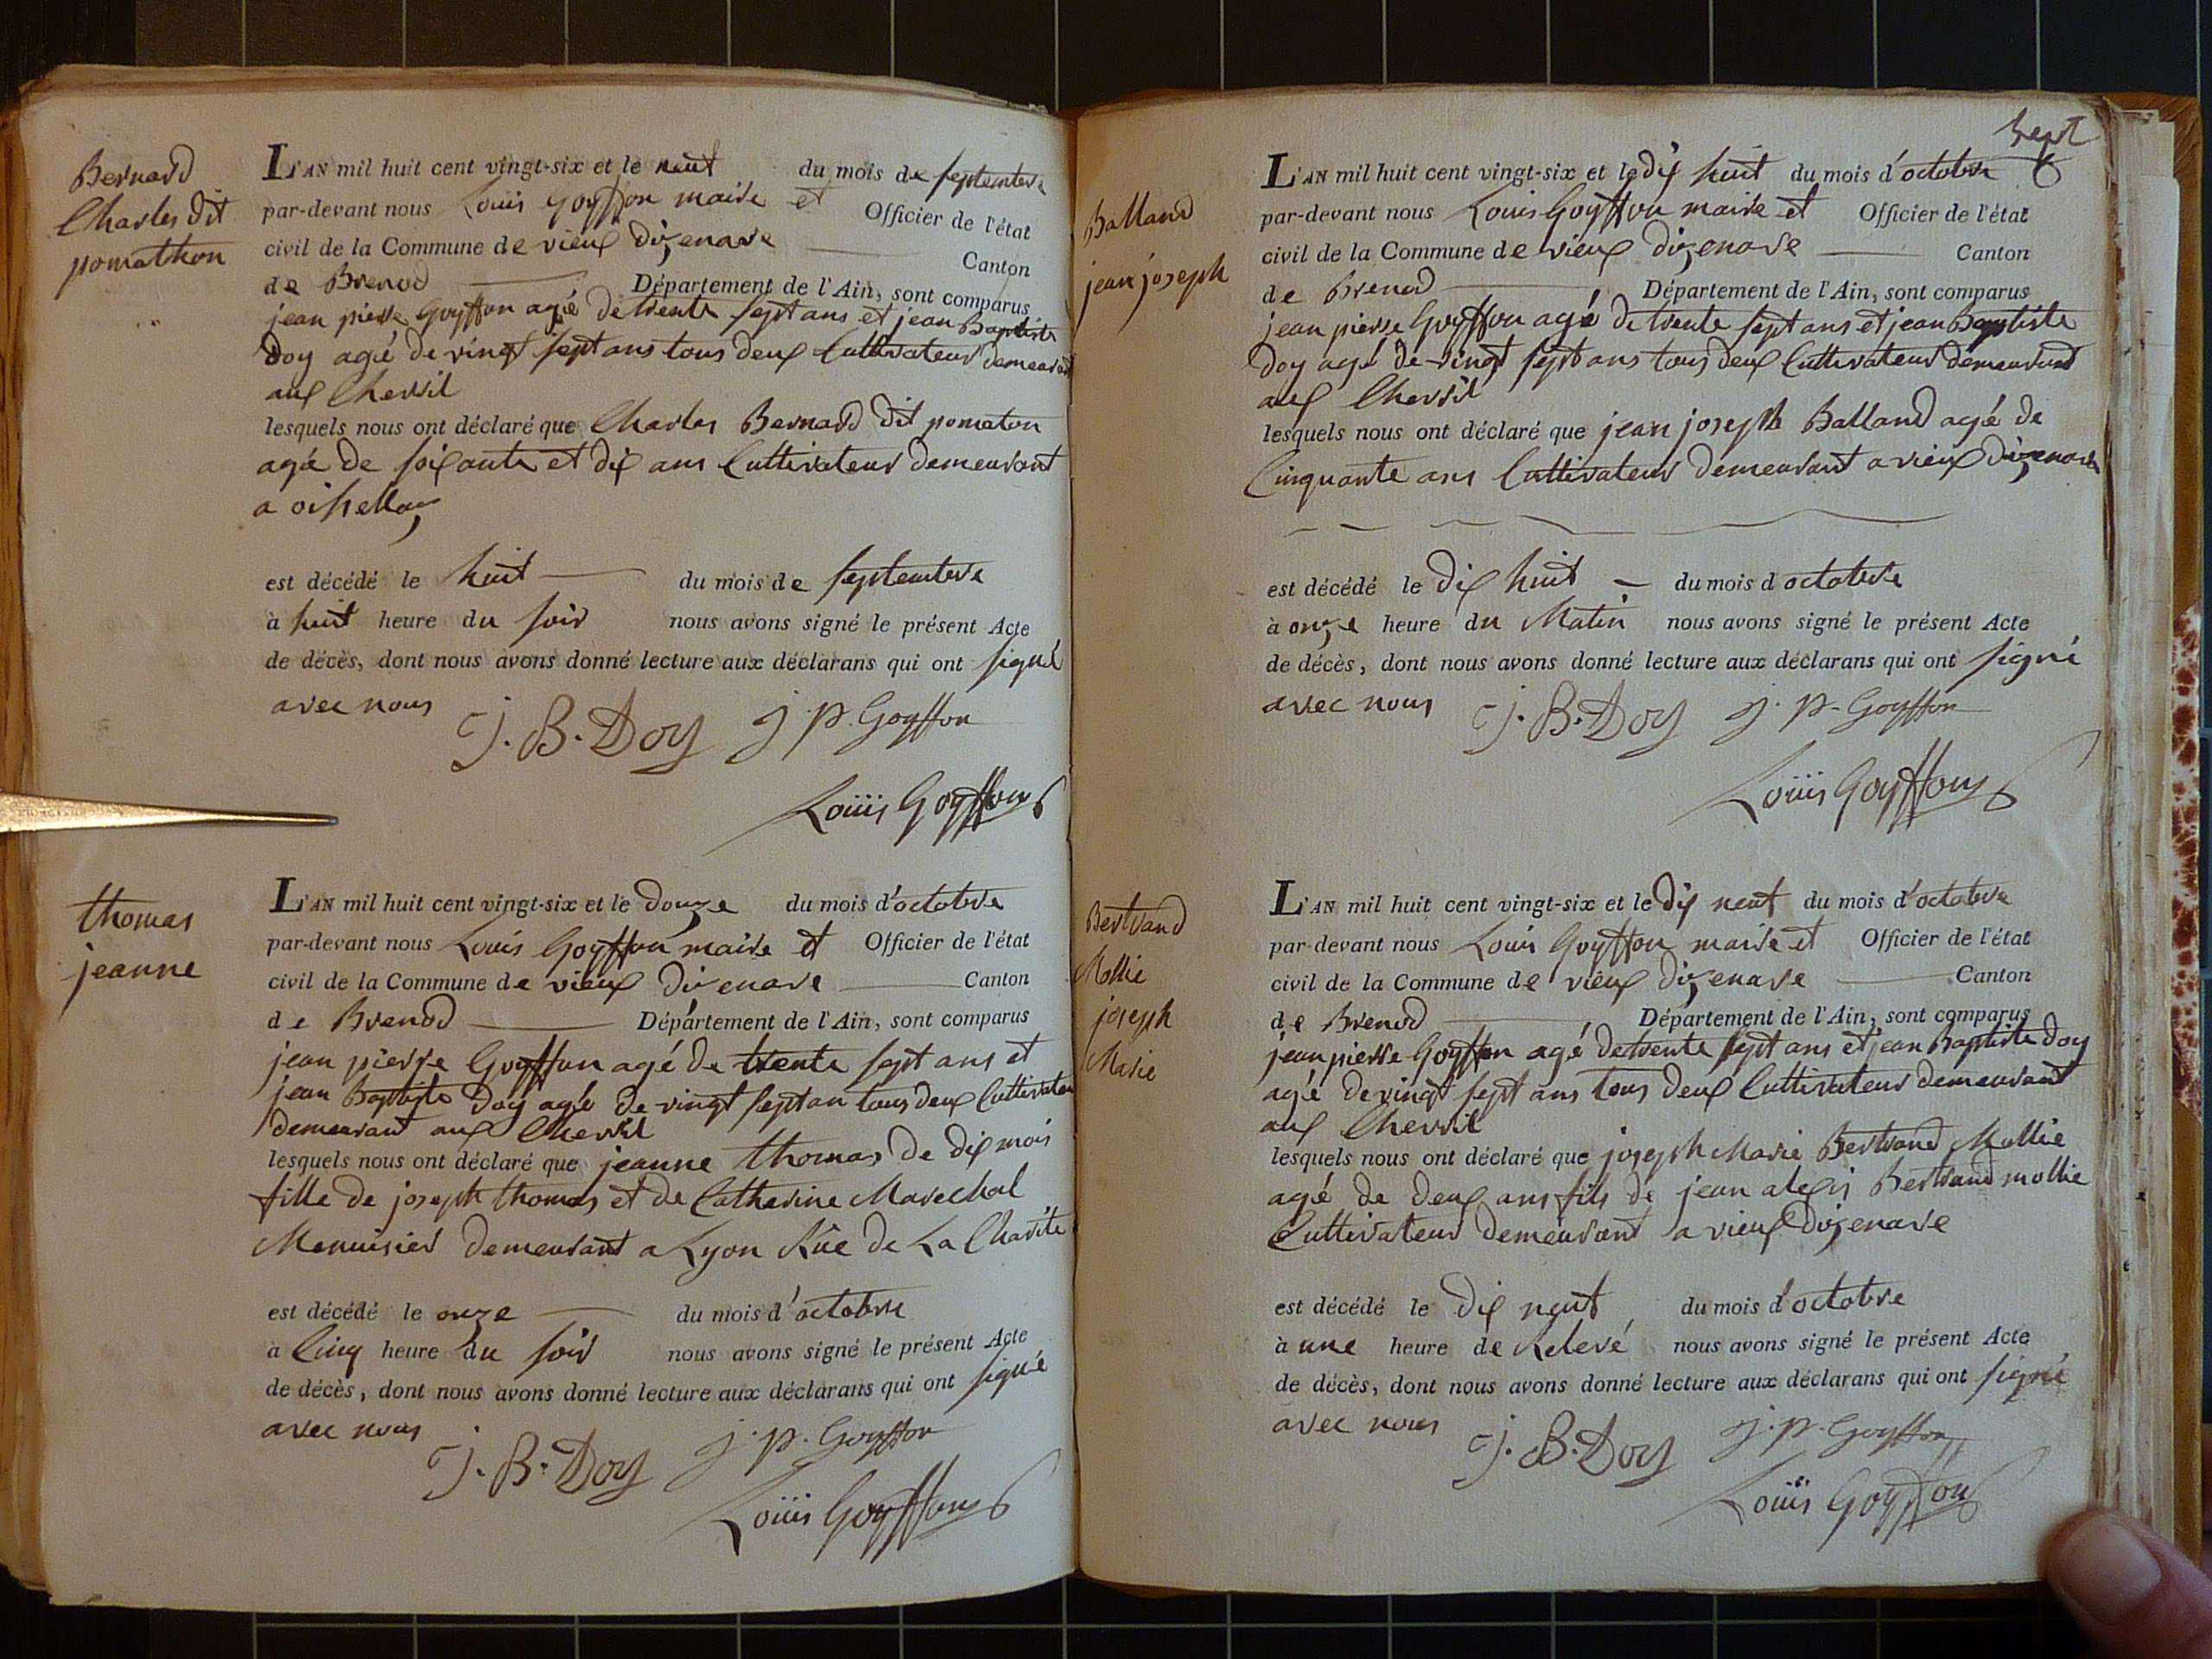 Bernard
Charles dit
pomathon
L'AN mil huit cent vingt-six et le neuf du mois de septembre
par-devant nous Louis Goyffon maire et Officier de l'état
civil de la Commune de vieux dizenave Canton
de Brenod Département de l'Ain, sont comparus
jean pierre Goyffon agé de trente sept ans et jean Baptiste
Doy agé de vingt sept ans tous deux Cultivateur demeurant
aux Chevril
lesquels nous ont déclaré que Charles Bernard dit pomaton
agé de soixante et dix ans Cultivateur demeurant
a
est décédé le huit du mois de septembre
à huit heure du soir nous avons signé le présent Acte
de décès, dont nous avons donné lecture aux déclarans qui ont signé
avec nous J. B. Doy j. p. Goyffon
Louis Goyffon
thomas
jeanne
L'AN mil huit cent vingt-six et le douze du mois d'octobre
par-devant nous Louis Goyffon maire et Officier de l'état
civil de la Commune de vieux dizenave Canton
de Brenod Département de l'Ain, sont comparus
jean pierre Goyffon agé de trente sept ans et
jean Baptiste Doy agé de vingt sept an tous deux Cultivateur
demeurant aux Chevril
lesquels nous ont déclaré que jeanne thomas de dix mois
fille de joseph thomas et de Catherine Marechal
Menuisier demeurant a Lyon Rüe de La Charité
est décédé le onze du mois d'octobre
à Cinq heure du soir nous avons signé le présent Acte
de décès, dont nous avons donné lecture aux déclarans qui ont signé
avec nous J. B. Doy j. p. Goyffon
Louis Goyffon
sept
Balland
jean joseph
L'AN mil huit cent vingt-six et le dix huit du mois d'octobre
par-devant nous Louis Goyffon maire et Officier de l'état
civil de la Commune de vieux dizenave Canton
de Brenod Département de l'Ain, sont comparus
jean pierre Goyffon agé de trente sept ans et jean Baptiste
Doy agé de vingt sept ans tous deux Cultivateur demeurant
aux Chevril
lesquels nous ont déclaré que jean joseph Balland agé de
Cinquante ans Cultivateur demeurant a vieux dizenave
est décédé le dix huit du mois d octobre
à onze heure du Matin nous avons signé le présent Acte
de décès, dont nous avons donné lecture aux déclarans qui ont signé
avec nous J. B. Doy j. p. Goyffon
Louis Goyffon
Bertrand
Mollie
joseph
Marie
L'AN mil huit cent vingt-six et le dix neuf du mois d'octobre
par-devant nous Louis Goyffon maire et Officier de l'état
civil de la Commune de vieux dizenave Canton
de Brenod Département de l'Ain, sont comparus
jean pierre Goyffon agé de trente sept ans et jean Baptiste Doy
agé de vingt sept ans tous deux Cultivateur demeurant
aux Chevril
lesquels nous ont déclaré que joseph Marie Bertrand Mollie
agé de deux ans fils de jean alexis Bertrand mollie
Cultivateur demeurant a vieux dizenave
est décédé le dix neuf du mois d'octobre
à une heure de Relevé nous avons signé le présent Acte
de décès, dont nous avons donné lecture aux déclarans qui ont signé
avec nous J. B. Doy j. p. Goyffon
Louis Goyffon